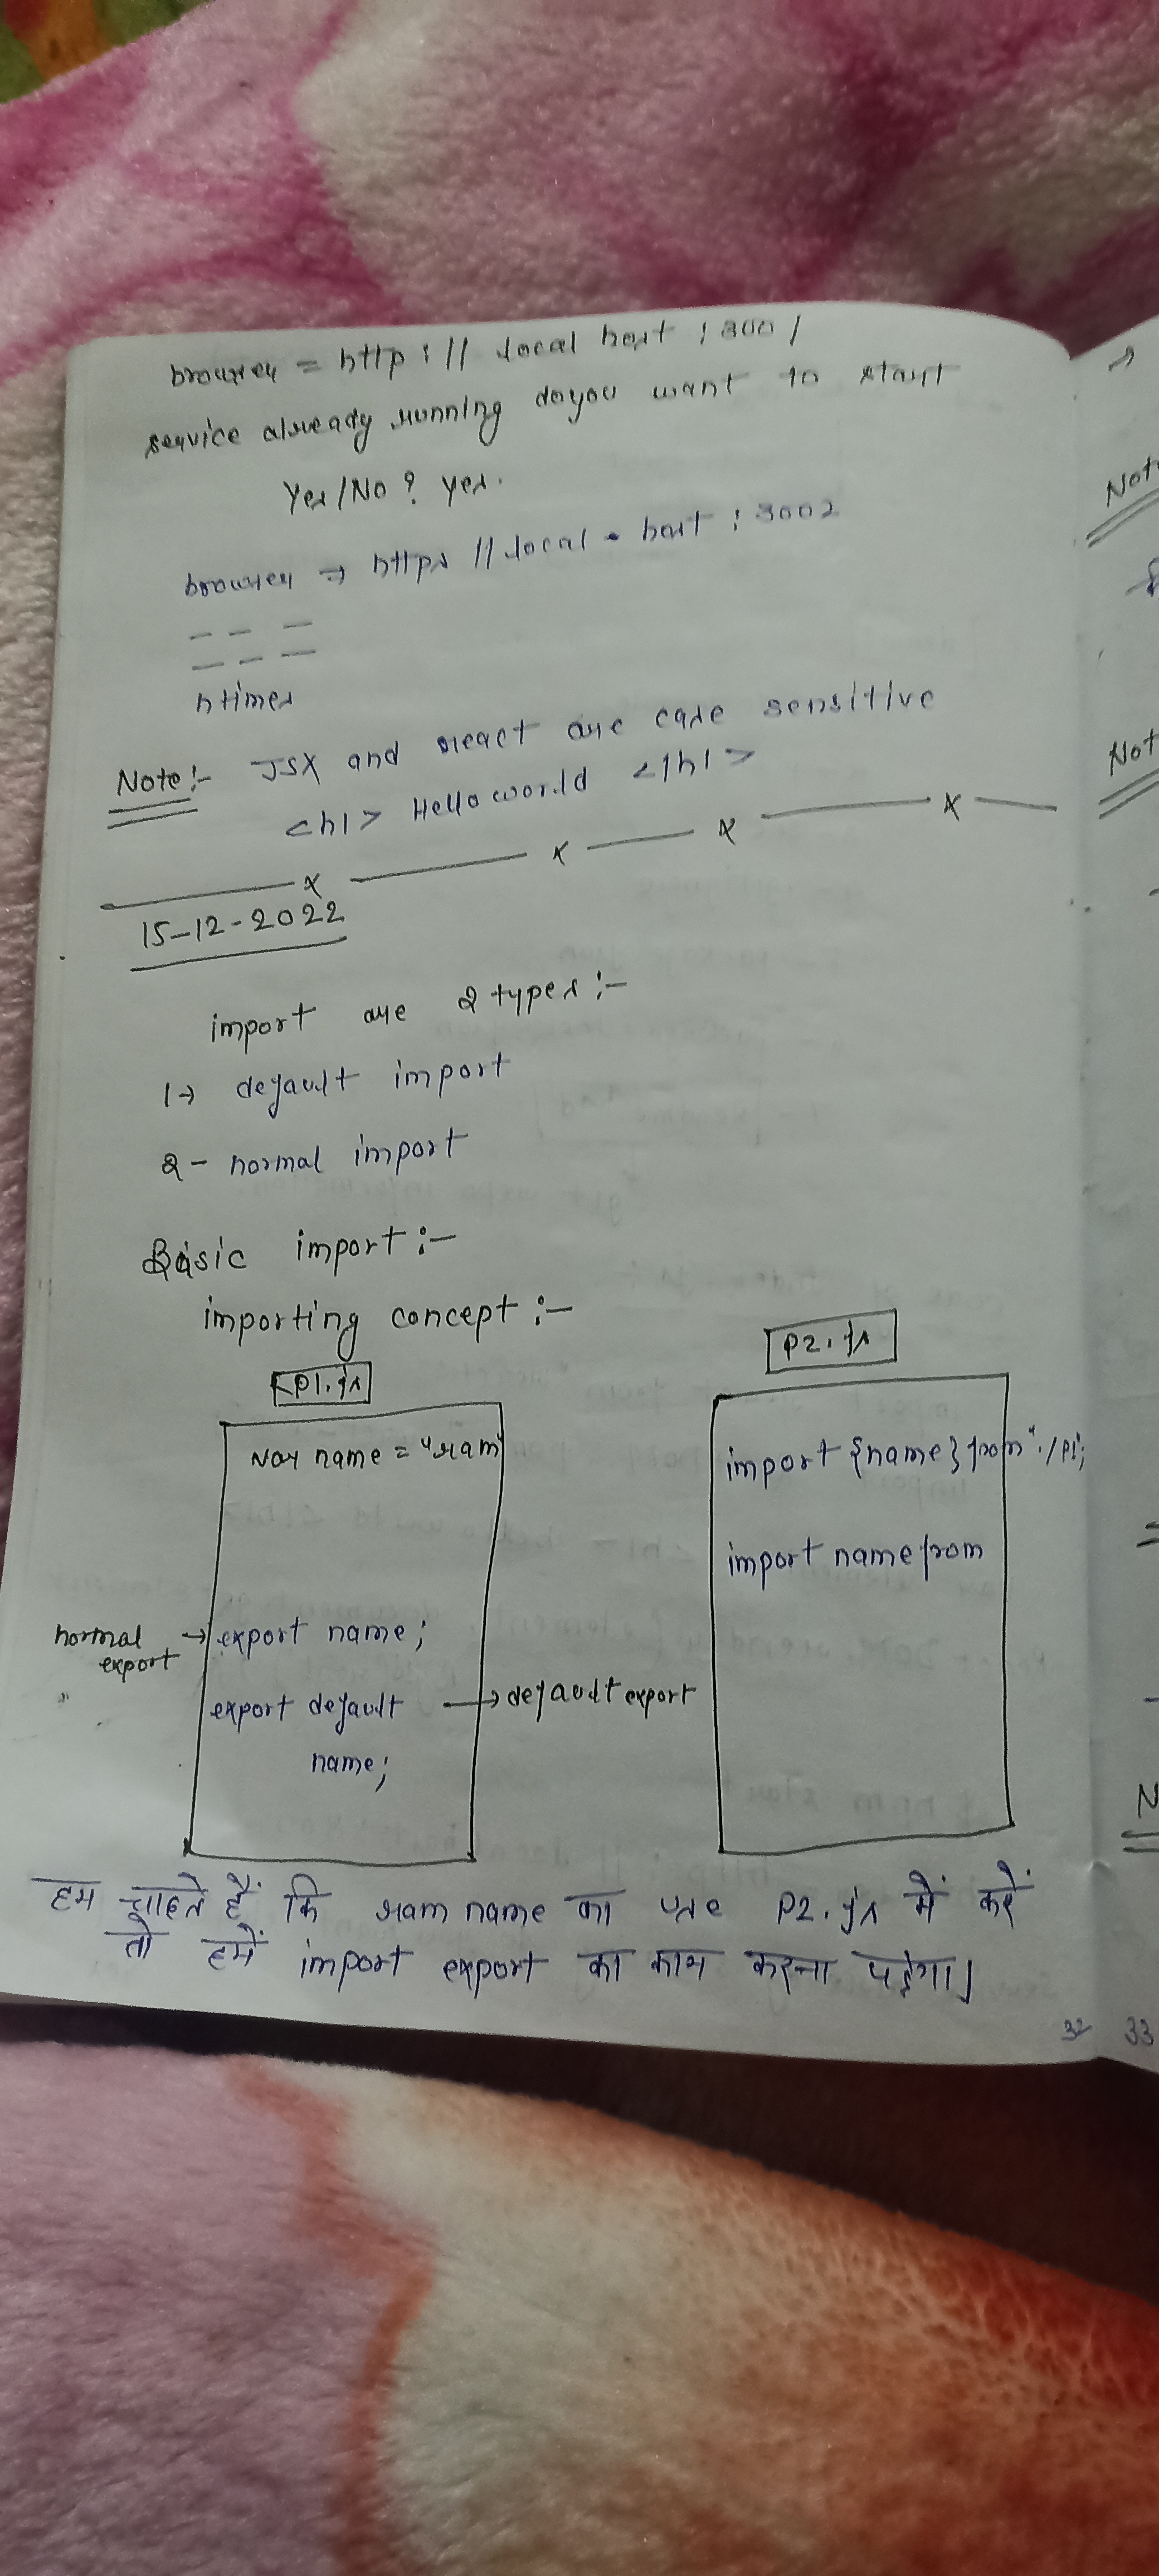 browser = http : // local host : 3001
service already running do you want to start
Yes/No ? yes.
browser → https // local - host : 3002
-- -- --
-- -- --
n times
Note :- JSX and react are case sensitive
<h1> Hello world </h1>
x x x x
15-12-2022
import are 2 types :-
1→ default import
2 - normal import
Basic import :-
importing concept :-
P1.js
P2.js
var name = "ram"
import {name} from "./P1;
import name from
normal export → export name;
export default → default export
name;
हम चाहते हैं कि ram name का use P2.js में करें
तो हमें import export का काम करना पड़ेगा।
32 33
Not
Not
N